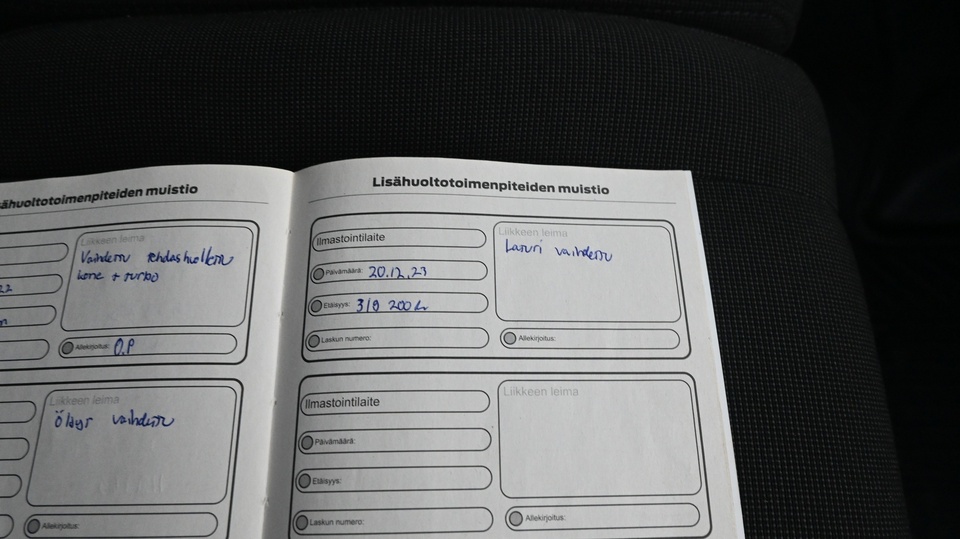 sähuoltotoimenpiteiden muistio
Liikkeen leima
Vaihdettu tehdashuollettu
kone + turbo
22
Allekirjoitus: O.P
Liikkeen leima
Öljyt vaihdettu
Allekirjoitus:
Lisähuoltotoimenpiteiden muistio
Ilmastointilaite
Päivämäärä: 20.12.23
Etäisyys: 318 200
Laskun numero:
Liikkeen leima
Laturi vaihdettu
Allekirjoitus:
Ilmastointilaite
Päivämäärä:
Etäisyys:
Laskun numero:
Liikkeen leima
Allekirjoitus: